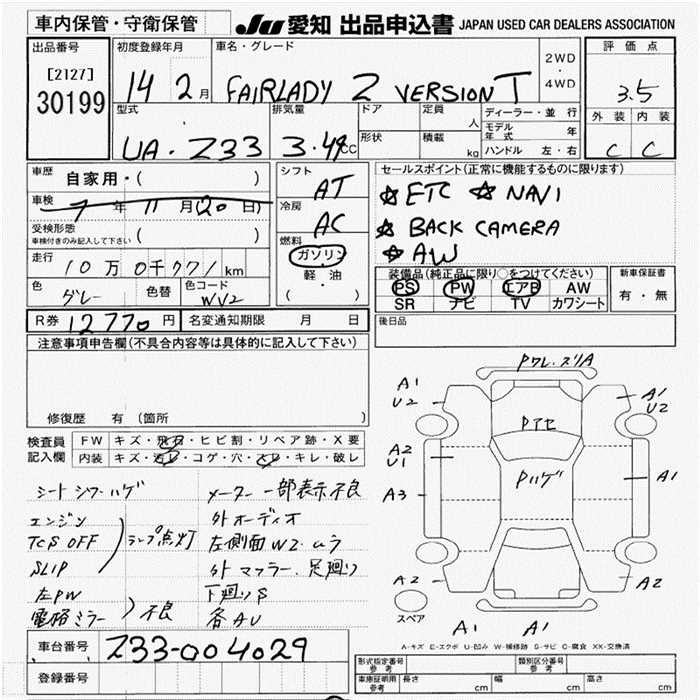 車内保管・守衛保管 JU 愛知 出品申込書 JAPAN USED CAR DEALERS ASSOCIATION
出品番号 初度登録年月 車名・グレード 2WD・4WD 評価点
[2127] 14 2月 FAIRLADY Z VERSION T 3.5
30199
型式 排気量 ドア 定員 人 ディーラー・並行 外装 内装
形状 積載 kg モデル年式 年
UA・Z33 3.49CC ハンドル 左・右 C C
車歴 自家用・( ) シフト AT セールスポイント(正常に機能するものに限ります)
車検 年 11月(20日) 冷房 AC ☆ETC ☆NAVI
受検形態 車検付きのみ記入して下さい ( ) 燃料 ☆BACK CAMERA
走行 10万0千771km ガソリン ☆AW
軽・油 装備品(純正品に限り○をつけてください) 新車保証書
色 グレー 色替 色コード WV2 ( ) PS PW エアB AW 有・無
SR ナビ TV カワシート
R券 12770円 名変通知期限 月 日 後日品
注意事項申告欄(不具合内容等は具体的に記入して下さい)
修復歴 有 (箇所 )
検査員記入欄 FW キズ・飛石・ヒビ割・リペア跡・X要
内装 キズ・汚レ・コゲ・穴・スレ・キレ・破レ
シートシワ・ハゲ メーター一部表示不良
エンジン 外オーディオ
TCS OFF ランプ点灯 左側面W2・ムラ
SLIP 外マフラー、足廻り
左PW 下廻りS
電格ミラー 不良 各AU
車台番号 Z33-004029
登録番号
Pワレ・スリA
A1 U2 A1 U2
Pアセ
A2 U1 Pハゲ A1
A3
A2 A2
スペア A1 A1
A-キズ E-エクボ U-凹み W-補修跡 S-サビ C-腐食 XX-交換済
形式指定番号 参考 類別区分番号 参考
車庫証明用 参考 長さ cm 幅 cm 高さ cm